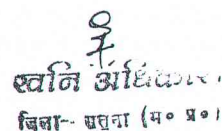 खनि अधिकारी
जिला-- सतना (म० प्र०)